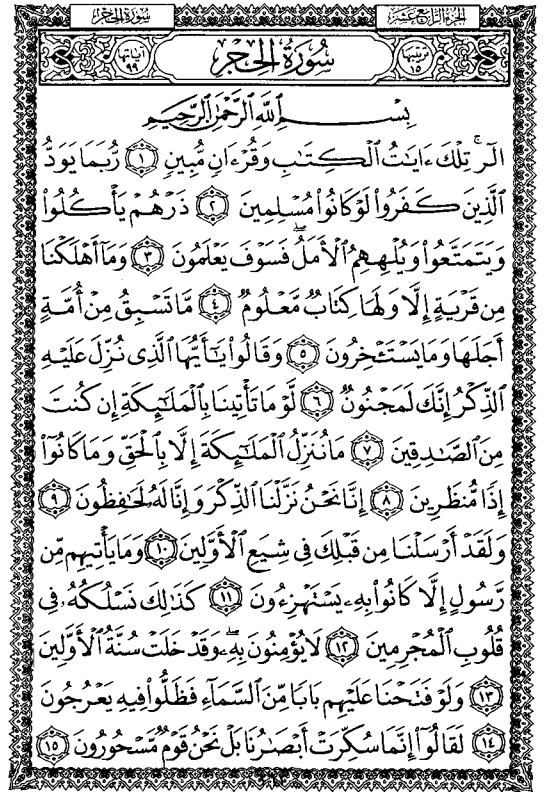 سُورَةُ الحِجْر
الجُزْءُ الرَّابِعُ عَشَرَ
ترتيبها ١٥
سُورَةُ الحِجْر
آياتها ٩٩
بِسْمِ ٱللَّهِ ٱلرَّحْمَٰنِ ٱلرَّحِيمِ
الٓر ۚ تِلْكَ ءَايَٰتُ ٱلْكِتَٰبِ وَقُرْءَانٍ مُّبِينٍ ١ رُّبَمَا يَوَدُّ
ٱلَّذِينَ كَفَرُوا۟ لَوْ كَانُوا۟ مُسْلِمِينَ ٢ ذَرْهُمْ يَأْكُلُوا۟
وَيَتَمَتَّعُوا۟ وَيُلْهِهِمُ ٱلْأَمَلُ ۖ فَسَوْفَ يَعْلَمُونَ ٣ وَمَآ أَهْلَكْنَا
مِن قَرْيَةٍ إِلَّا وَلَهَا كِتَابٌ مَّعْلُومٌ ٤ مَّا تَسْبِقُ مِنْ أُمَّةٍ
أَجَلَهَا وَمَا يَسْتَـْٔخِرُونَ ٥ وَقَالُوا۟ يَٰٓأَيُّهَا ٱلَّذِى نُزِّلَ عَلَيْهِ
ٱلذِّكْرُ إِنَّكَ لَمَجْنُونٌ ٦ لَّوْ مَا تَأْتِينَا بِٱلْمَلَٰٓئِكَةِ إِن كُنتَ
مِنَ ٱلصَّٰدِقِينَ ٧ مَا نُنَزِّلُ ٱلْمَلَٰٓئِكَةَ إِلَّا بِٱلْحَقِّ وَمَا كَانُوٓا۟
إِذًا مُّنظَرِينَ ٨ إِنَّا نَحْنُ نَزَّلْنَا ٱلذِّكْرَ وَإِنَّا لَهُۥ لَحَٰفِظُونَ ٩
وَلَقَدْ أَرْسَلْنَا مِن قَبْلِكَ فِى شِيَعِ ٱلْأَوَّلِينَ ١٠ وَمَا يَأْتِيهِم مِّن
رَّسُولٍ إِلَّا كَانُوا۟ بِهِۦ يَسْتَهْزِءُونَ ١١ كَذَٰلِكَ نَسْلُكُهُۥ فِى
قُلُوبِ ٱلْمُجْرِمِينَ ١٢ لَا يُؤْمِنُونَ بِهِۦ ۖ وَقَدْ خَلَتْ سُنَّةُ ٱلْأَوَّلِينَ
١٣ وَلَوْ فَتَحْنَا عَلَيْهِم بَابًا مِّنَ ٱلسَّمَآءِ فَظَلُّوا۟ فِيهِ يَعْرُجُونَ
١٤ لَقَالُوٓا۟ إِنَّمَا سُكِّرَتْ أَبْصَٰرُنَا بَلْ نَحْنُ قَوْمٌ مَّسْحُورُونَ ١٥